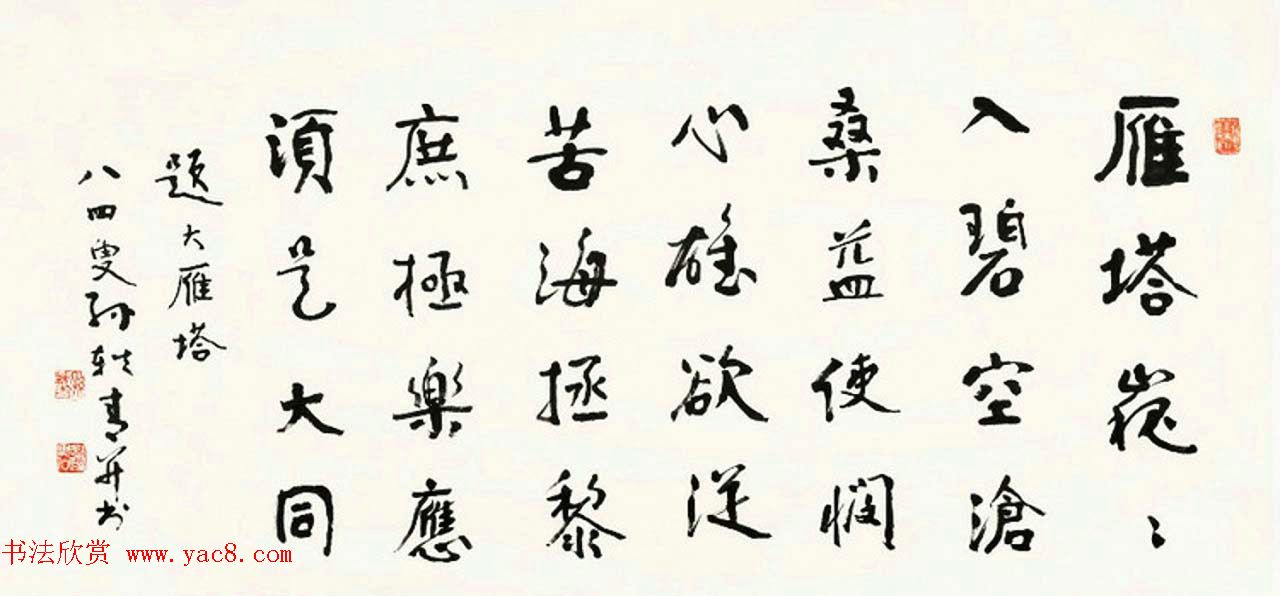 雁塔巍〻
入碧空滄
桑益使憫
心雄欲從
苦海拯黎
庶極樂應
須是大同
題大雁塔
八四叟孫軼青并书
书法欣赏 www.yac8.com